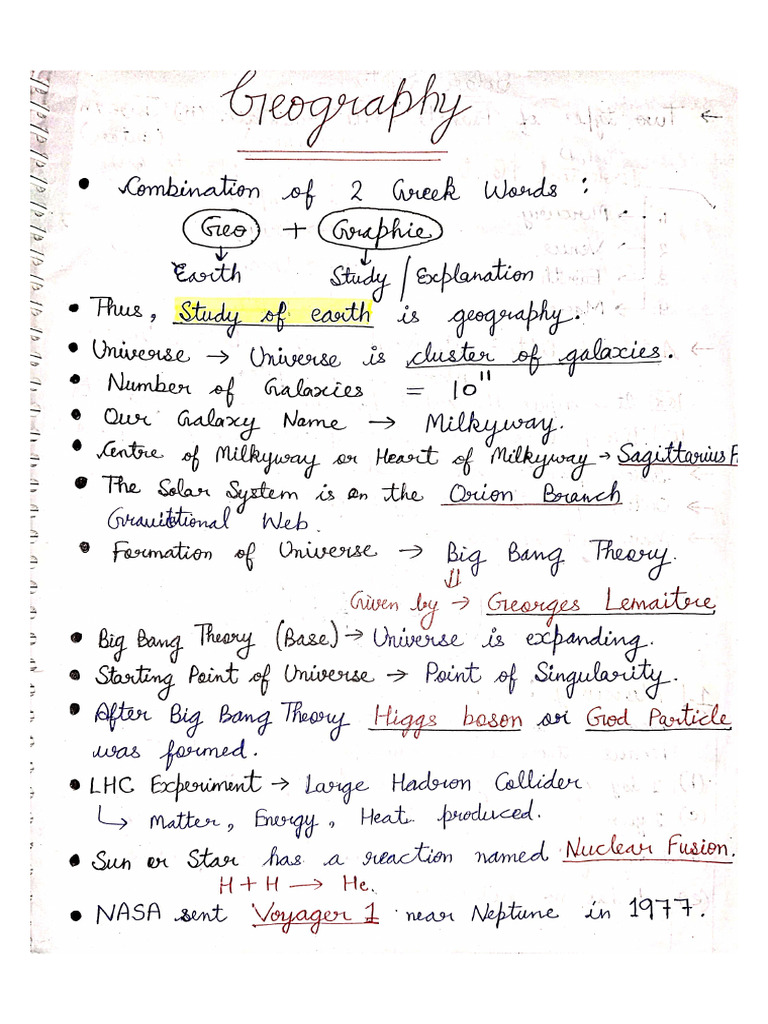 Geography
• Combination of 2 Greek Words :
Geo + Graphie
↓ ↓
Earth Study / Explanation
• Thus, Study of earth is geography.
• Universe → Universe is cluster of galaxies.
• Number of Galaxies = 10¹¹
• Our Galaxy Name → Milkyway.
• Centre of Milkyway or Heart of Milkyway → Sagittarius
• The Solar System is on the Orion Branch
Gravitational Web.
• Formation of Universe → Big Bang Theory.
⇓
Given by → Georges Lemaitre
• Big Bang Theory (Base) → Universe is expanding.
• Starting Point of Universe → Point of Singularity.
• After Big Bang Theory Higgs boson or God Particle
was formed.
• LHC Experiment → Large Hadron Collider
↳ Matter, Energy, Heat produced.
• Sun or Star has a reaction named Nuclear Fusion.
H + H → He.
• NASA sent Voyager 1 near Neptune in 1977.